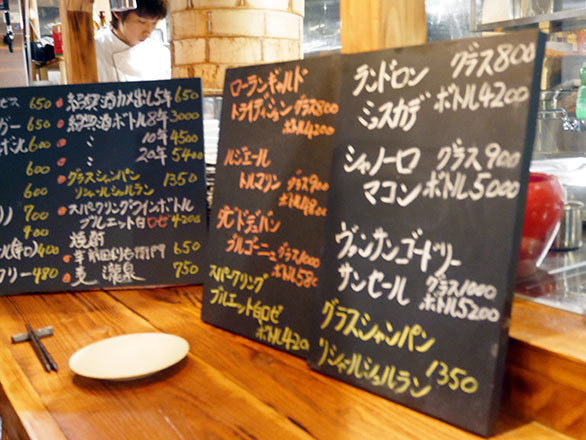 650
650
600
600
700
900
400
480
紹興酒カメ出し5年 650
紹興酒ボトル8年 3000
〃 10年 4500
〃 20年 5400
グラスシャンパン
リシャールシュルラン 1350
スパークリングワインボトル
ブルエット白ロゼ 4200
焼酎
650
麦 750
ローランギョルド
トラディション グラス800
ボトル4200
ルジェール
トルマリン グラス900
ボトル4800
ブルゴーニュ グラス1000
ボトル580
スパークリング
ブルエット白ロゼ
ボトル420
ランドロン グラス800
ミュスカデ ボトル4200
シャノーロ グラス900
マコン ボトル5000
ヴァンサンゴードリー
サンセール グラス1000
ボトル5200
グラスシャンパン
リシャルシュルラン 1350